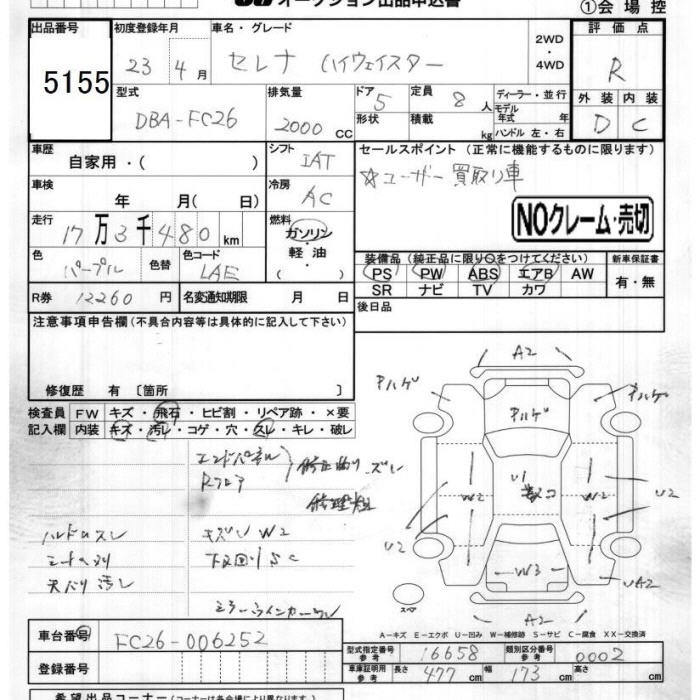 オークション出品申込書
①会場控
出品番号 初度登録年月 車名・グレード 評価点
5155
23年 4月 セレナ ハイウェイスター 2WD・4WD R
型式 排気量 ドア 5 定員 8人 ディーラー・並行 外装 内装
DBA-FC26 2000CC 形状 積載 kg モデル年式 年 D C
ハンドル 左・右
車歴 自家用・( ) シフト IAT セールスポイント (正常に機能するものに限ります)
☆ユーザー買取り車
車検 年 月(日) 冷房 AC
NOクレーム・売切
走行 17万3千480km 燃料 ガソリン・軽油・( )
色 パープル 色替 色コード LAE
装備品 (純正品に限り○をつけてください) 新車保証書
PS PW ABS エアB AW 有・無
SR ナビ TV カワ
R券 12260円 名変通知期限 月 日 後日品
注意事項申告欄 (不具合内容等は具体的に記入して下さい)
修復歴 有〔箇所 〕
検査員 FW キズ・飛石・ヒビ割・リペア跡・×要
記入欄 内装 キズ・汚レ・コゲ・穴・スレ・キレ・破レ
エンドパネル
Rフロア
修正曲り・ズレ
ハンドルスレ キズ W2
天バリ汚レ 下廻りSC
A2
Pハゲ Pハゲ Pハゲ
U1
W2 W2 U2
U2
W3 UA2
スペア
A2
A-キズ E-エクボ U-凹み W-補修跡 S-サビ C-腐食 XX-交換済
車台番号 FC26-006252
登録番号
型式指定番号 参考 16658 類別区分番号 参考 0002
車庫証明用 参考 長さ 477cm 幅 173cm 高さ cm
希望出品コーナー (コーナーは各会場により異なります)